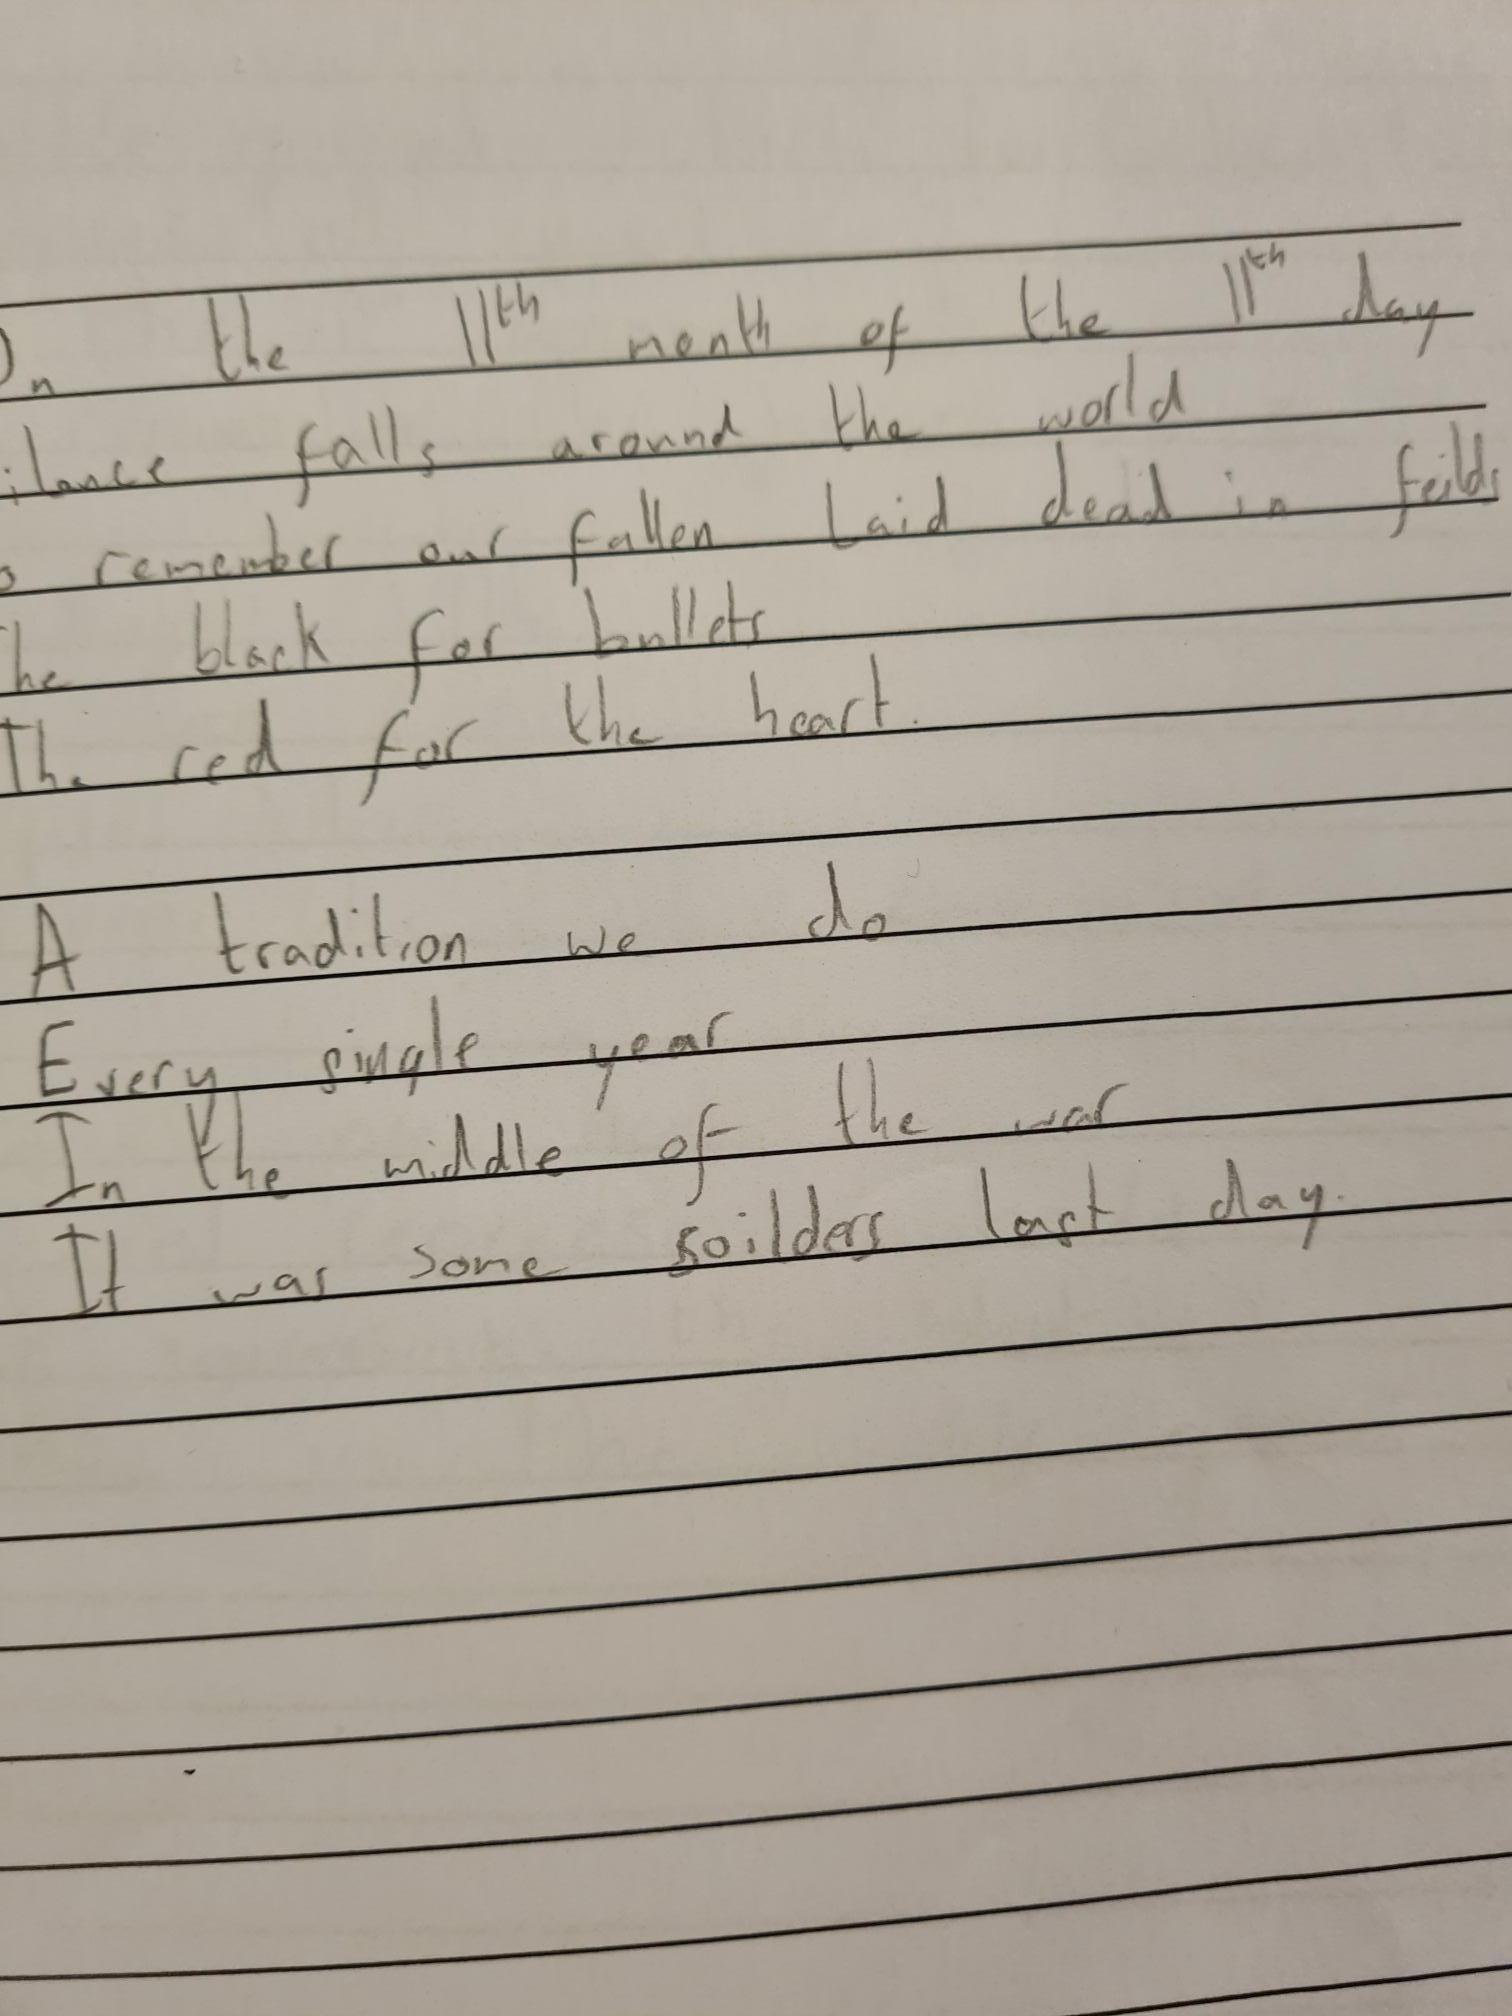 On the 11th month of the 11th day
ilance falls around the world
o remember our fallen Laid dead in feilds
he black for bullets
The red for the heart.
A tradition we do
Every single year
In the middle of the war
It was some soilders last day.